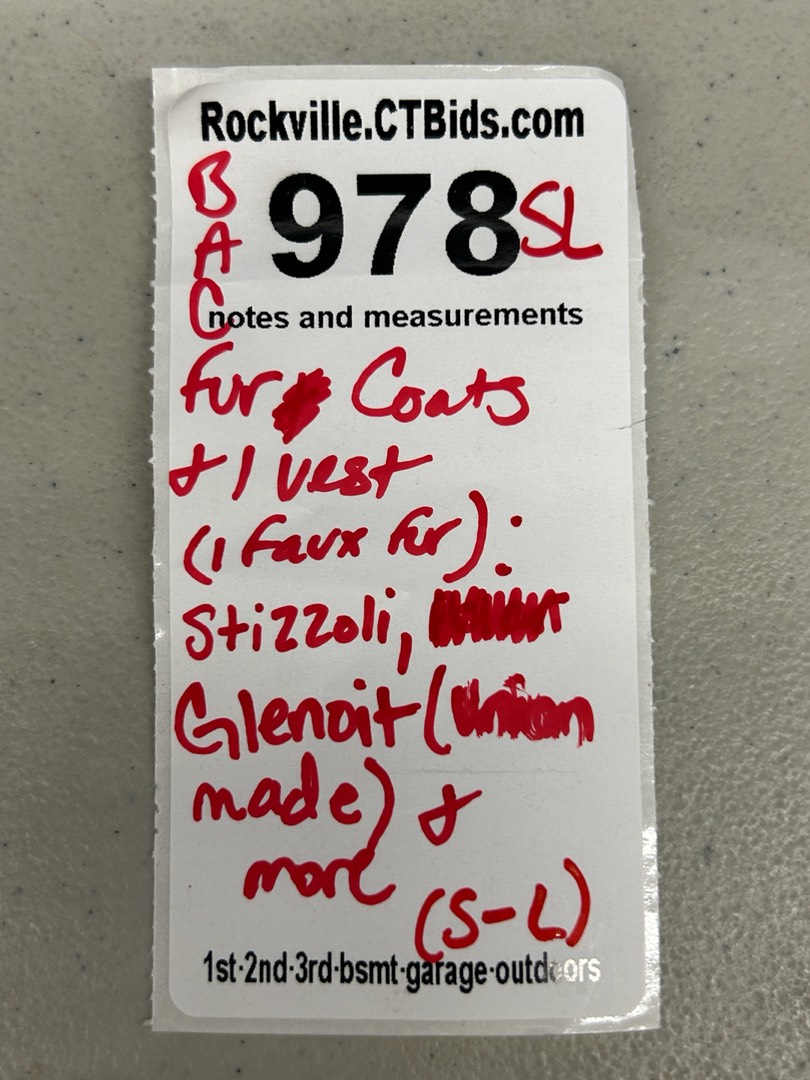 Rockville.CTBids.com
B
A
C
978 SL
notes and measurements
Fur Coats
+ 1 vest
(1 Faux Fur):
Stizzoli,
Glenoit (Union
made) +
more
(S-L)
1st·2nd·3rd·bsmt·garage·outdoors